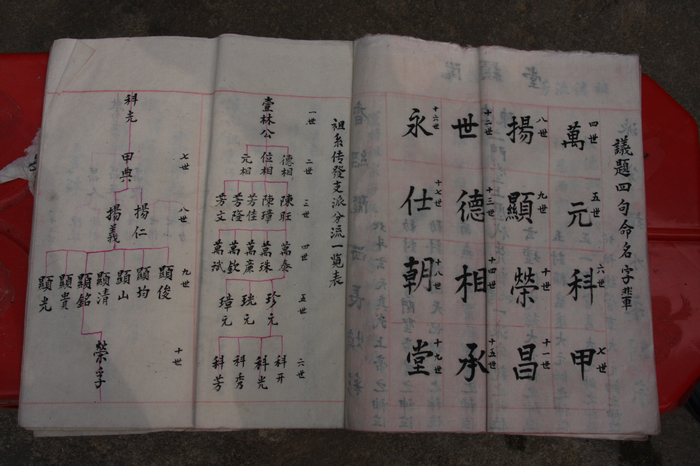 議題四句命名字輩
四世 萬 五世 元 六世 科 七世 甲
八世 揚 九世 顯 十世 榮 十一世 昌
十二世 世 十三世 德 十四世 相 十五世 承
十六世 永 十七世 仕 十八世 朝 十九世 堂
祖系传發支派分流一覧表
一世 林公
二世 德相 位相 元相
三世 陳旺 陳璋 芳佳 芳隆 芳文
四世 萬泰 萬珠 萬廉 萬欽 萬斌
五世 珍元 珖元 璋元
六世 科开 科光 科秀 科芳
科光
七世 甲典
八世 揚仁 揚義
九世 顯俊 顯均 顯山 顯清 顯銘 顯貴 顯光
十世 榮